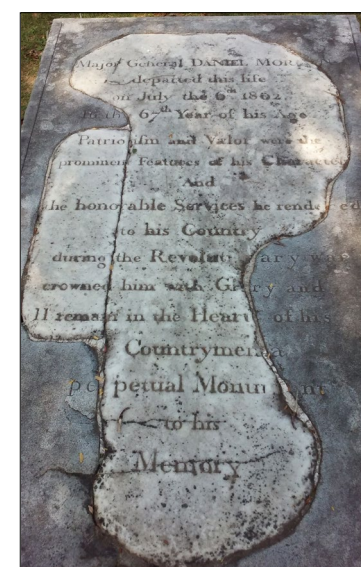 Major General DANIEL MOR
departed this life
on July the 6th 1802
67th Year of his Age
Patriotism and Valor were the
prominent Features of his Character
And
the honorable Services he rendered
to his Country
during the Revolutionary war
crowned him with Glory and
ll remain in the Hearts of his
Countrymen a
perpetual Monument
to his
Memory